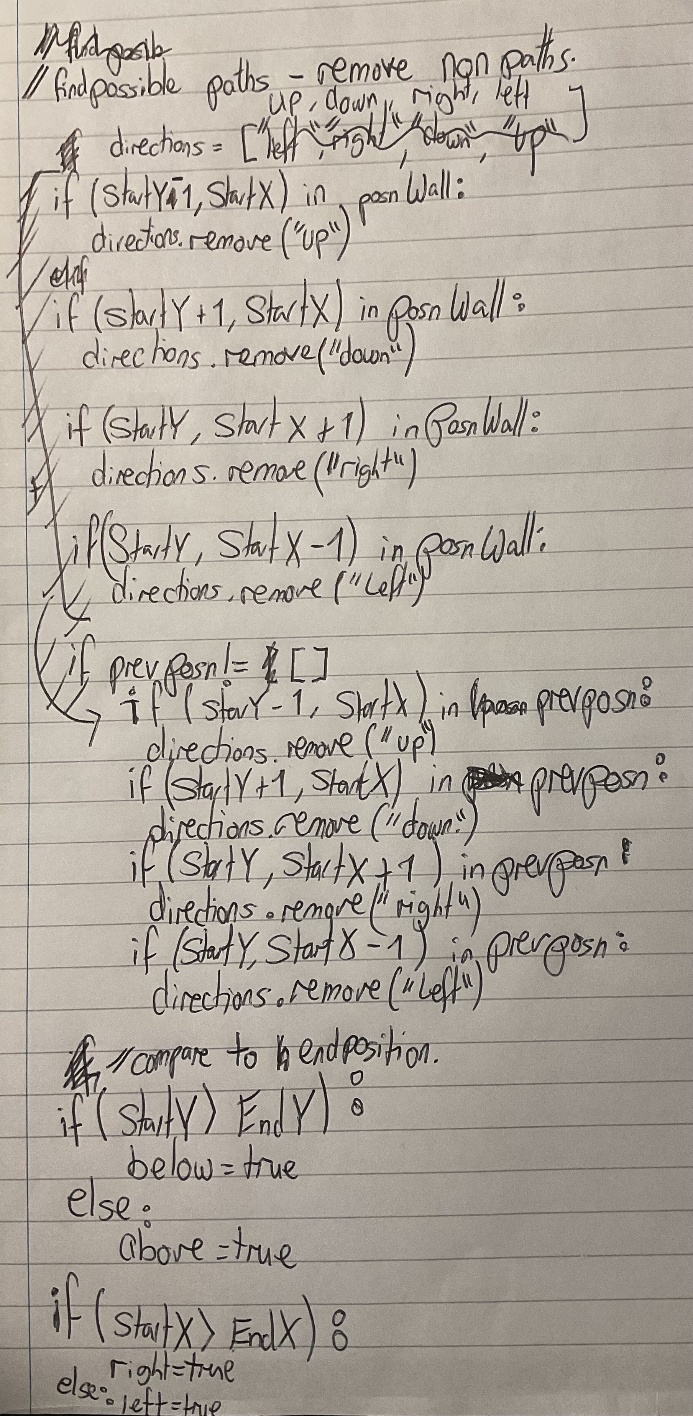 // find posib
// find possible paths - remove non paths.
up, down, right, left
directions = ["left", "right", "down", "up"]
if (StartY-1, StartX) in posnWall:
directions.remove("up")
elif
if (startY+1, StartX) in posnWall:
directions.remove("down")
if (StartY, StartX+1) in PosnWall:
directions.remove("right")
if (StartY, StartX-1) in posnWall:
directions.remove("Left")
if prevposn != []
if (StarY-1, StartX) in prevposn:
directions.remove("up")
if (StartY+1, StartX) in prevposn:
directions.remove("down")
if (StartY, StartX+1) in prevposn:
directions.remove("right")
if (StartY, StartX-1) in prevposn:
directions.remove("Left")
// compare to endposition.
if (StartY > EndY):
below = true
else:
above = true
if (StartX > EndX):
right = true
else:
left = true